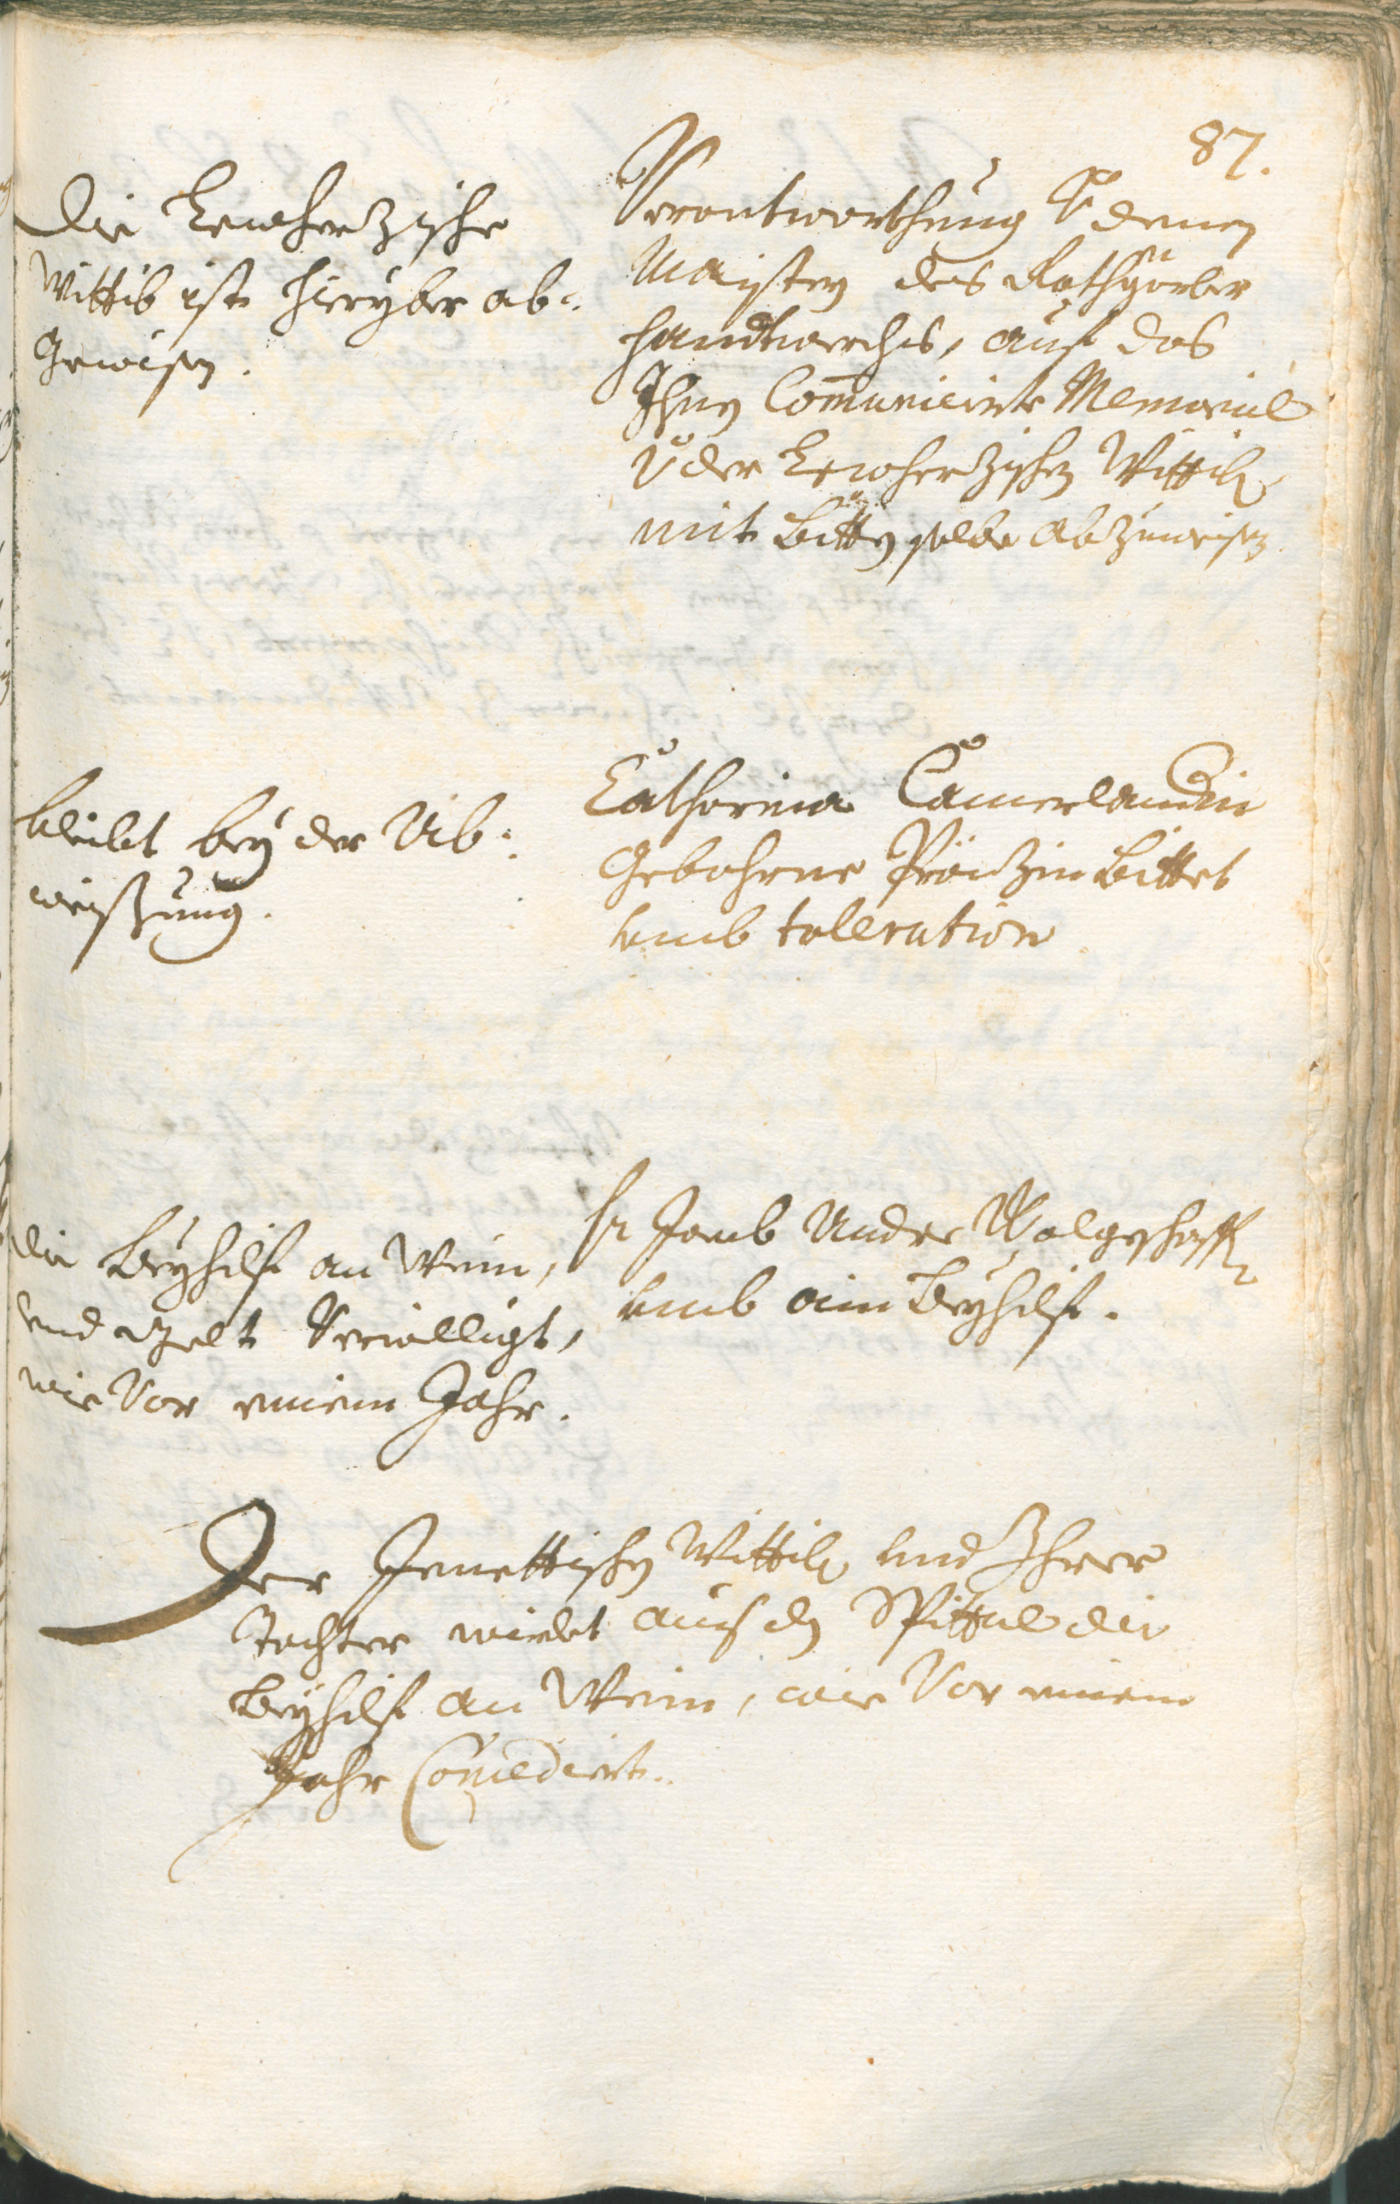 87.
Die Lewhertzische
Wittib ist hieryber ab=
gewisen.
Verantworthung V denen
Maistern des Rothgörber
handtwerchs, auf das
Ihnen Communicirte Memorial
V der Lewhertzischen Wittib
mit bitten selbe abzuweisen
bleibt bey der Ab=
weißung.
Catharina Camerlandin
gebohrne Präntzin bittet
umb tolleration
die Beyhilf an Wein,
und gelt verwilligt,
wie vor einem Jahr.
hr Jacob Andre Wolgeschaffen
umb ein Beyhilf.
Der Jenettischen Wittib und Ihrer
Tochter wirdet aus dem Spittal die
Beyhilf an Wein, wie vor einem
Jahr Concedirt.